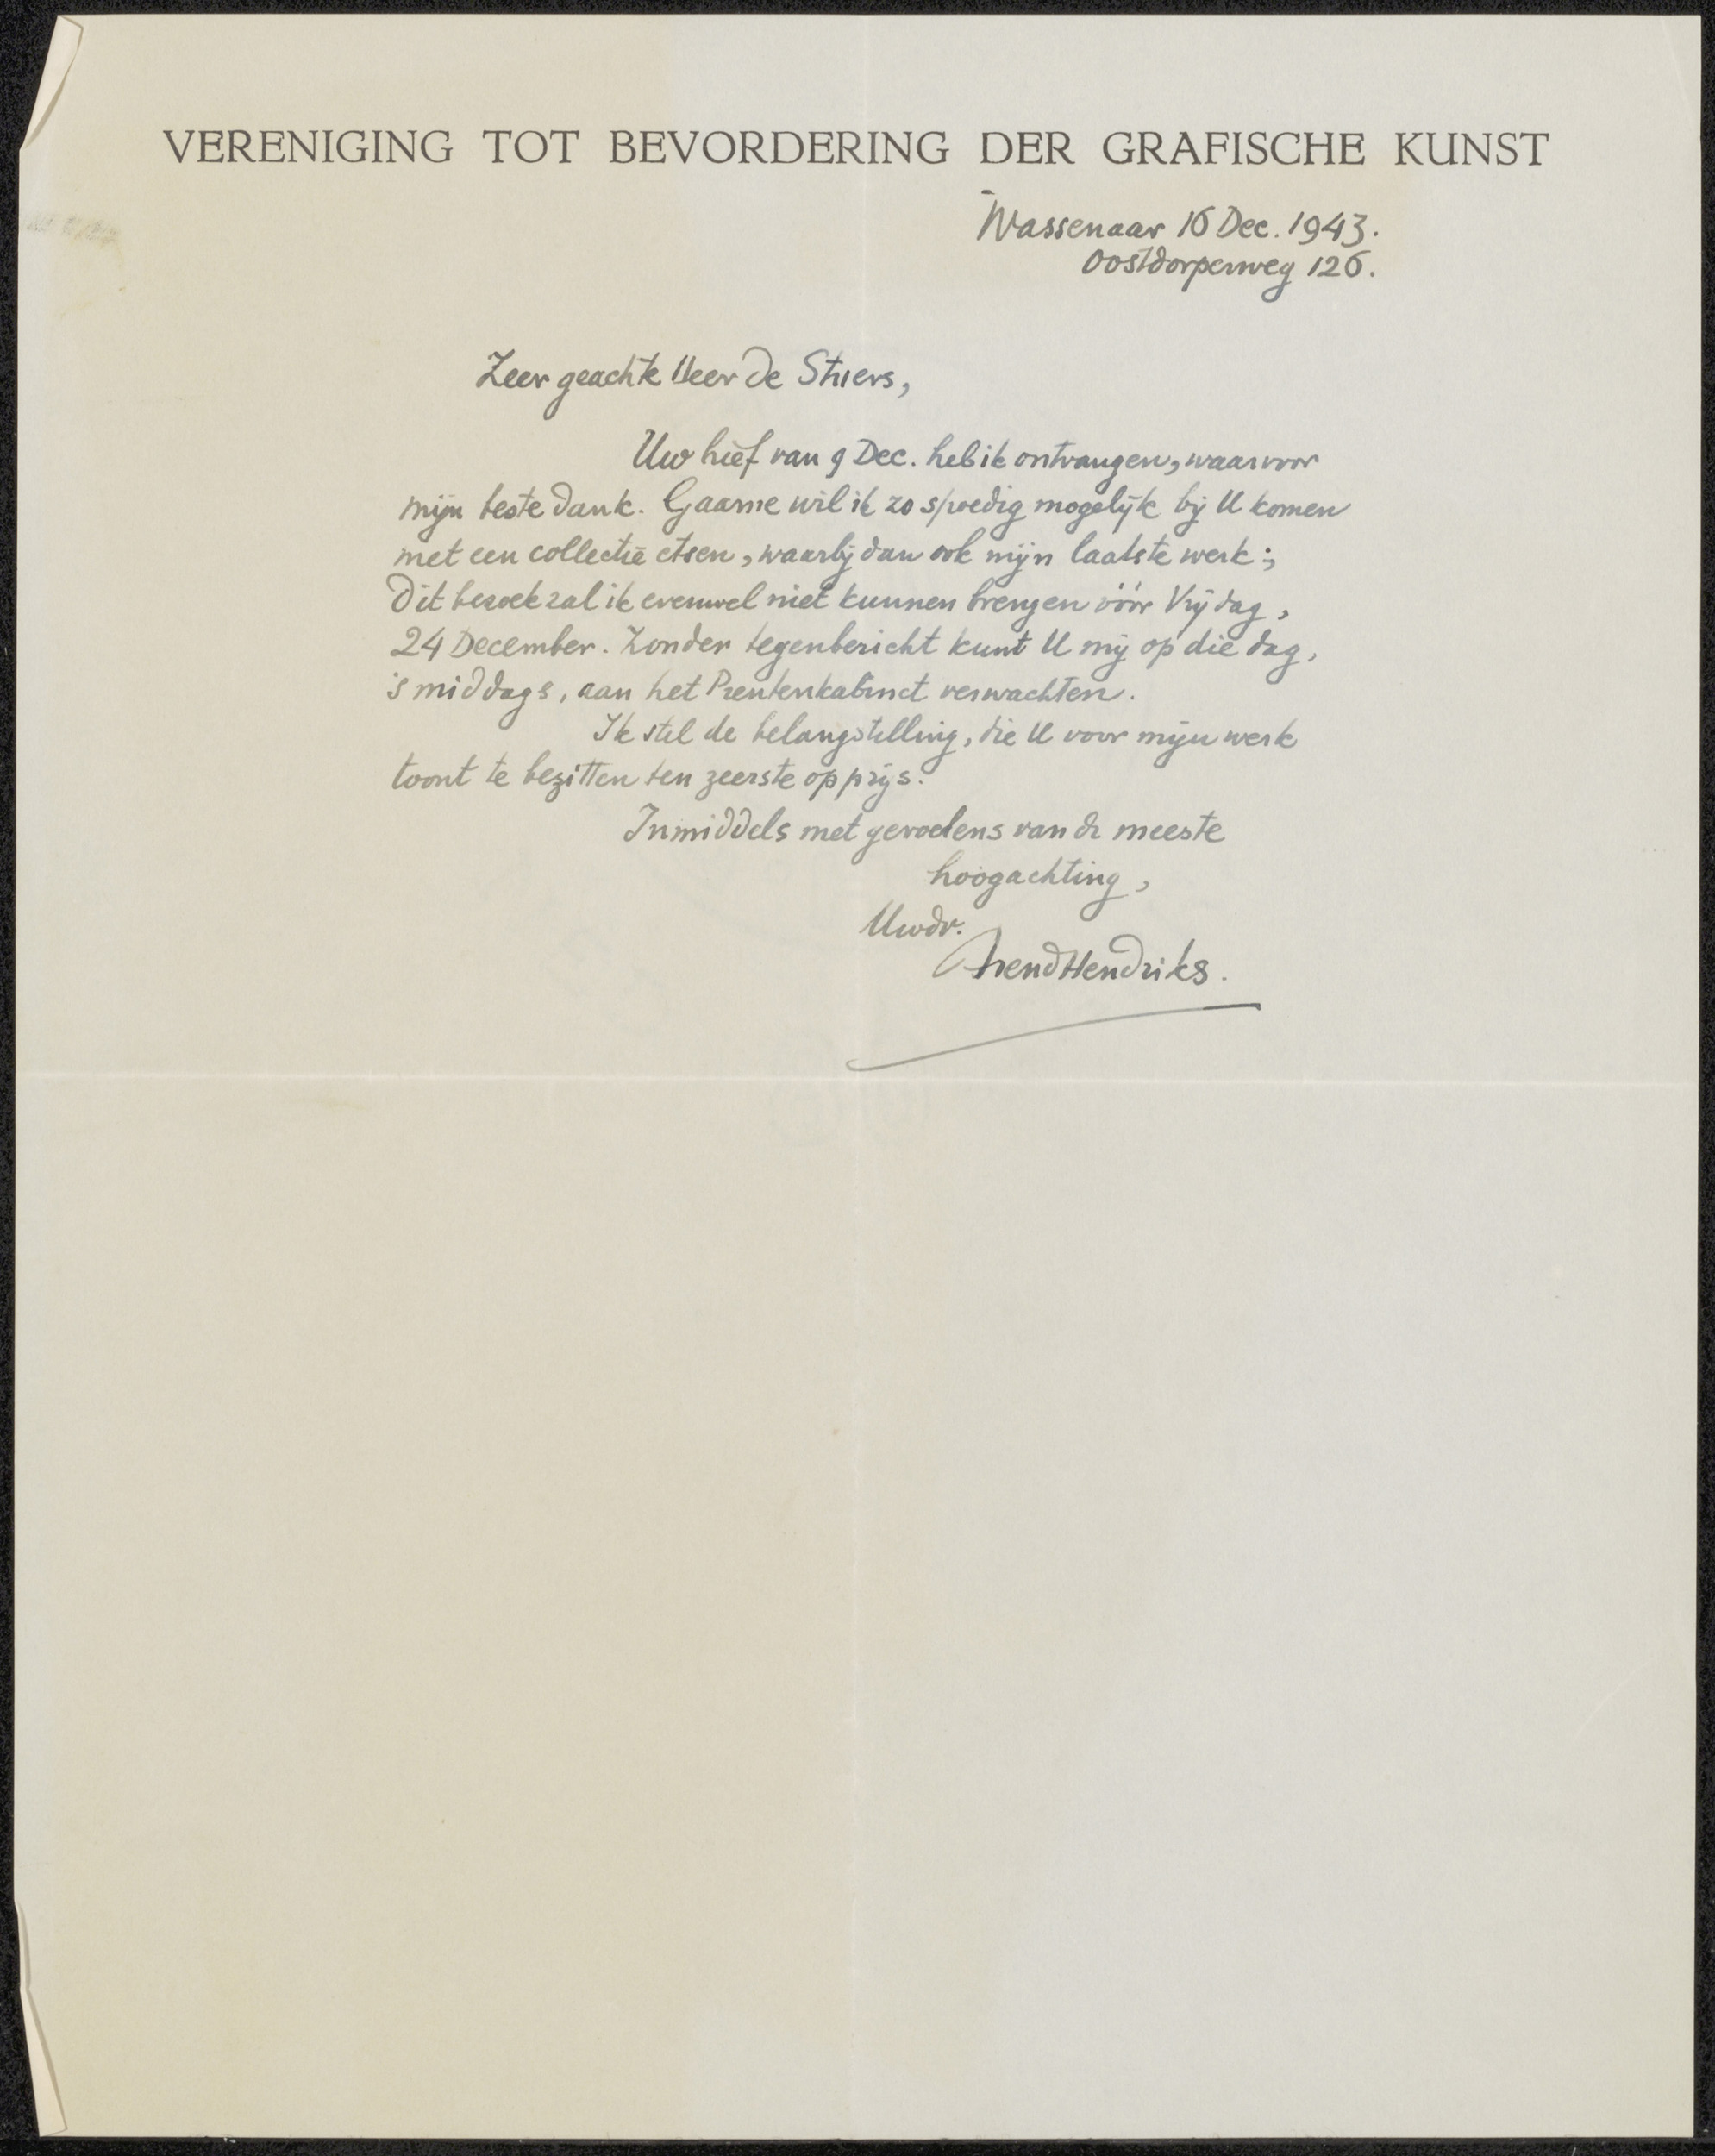 VERENIGING TOT BEVORDERING DER GRAFISCHE KUNST
Wassenaar 16 Dec. 1943.
Oostdorperweg 126.
Zeer geachte Heer de Stuers,
Uw brief van 9 Dec. heb ik ontvangen, waarvoor
mijn beste dank. Gaarne wil ik zo spoedig mogelijk bij U komen
met een collectie etsen, waarbij dan ook mijn laatste werk;
Dit bezoek zal ik evenwel niet kunnen brengen vóór Vrijdag,
24 December. Zonder tegenbericht kunt U mij op die dag,
's middags, aan het Prentenkabinet verwachten.
Ik stel de belangstelling, die U voor mijn werk
toont te bezitten ten zeerste op prijs.
Inmiddels met gevoelens van de meeste
hoogachting,
Uwdr.
Arend Hendriks.